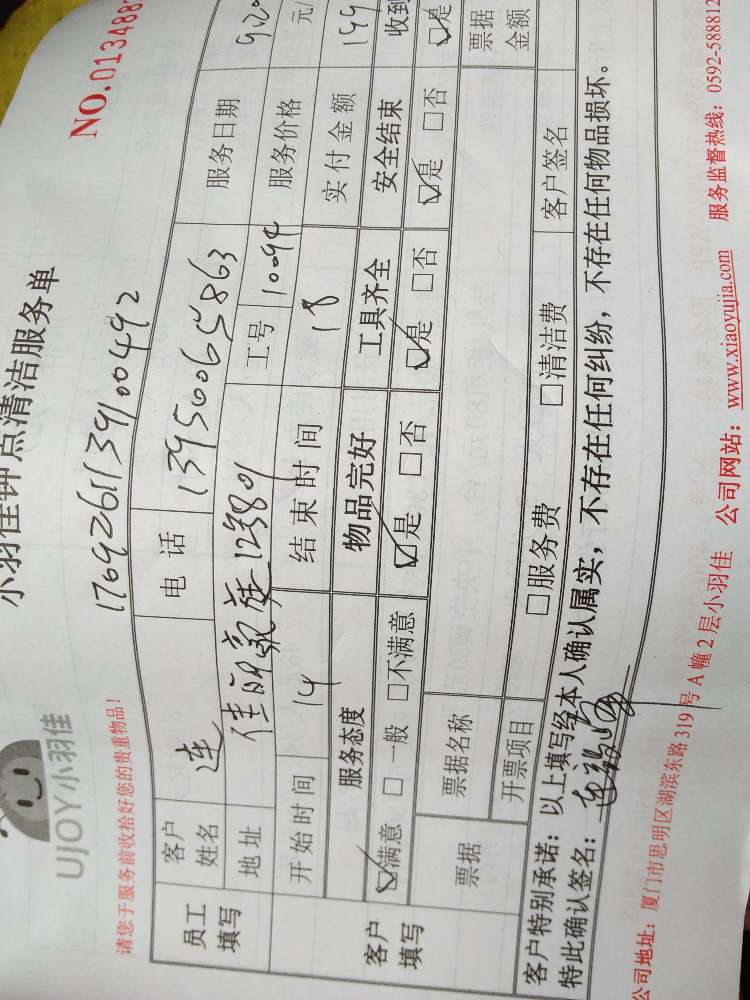 UJOY小羽佳
小羽佳钟点清洁服务单
NO.0134888
请您于服务前收拾好您的贵重物品!
1709261139100492
员工填写
客户姓名 连 电话 13950065863 服务日期 9.20
地址 佳丽家庭 12#801 工号 10094 服务价格 元/
客户填写
开始时间 14 结束时间 18 实付金额 199
服务态度 物品完好 工具齐全 安全结束 收到
☑满意 □一般 □不满意 ☑是 □否 ☑是 □否 ☑是 □否 ☑是
票据 票据名称 票据金额
开票项目 □服务费 □清洁费 客户签名
客户特别承诺:以上填写经本人确认属实,不存在任何纠纷,不存在任何物品损坏。
特此确认签名:
公司地址:厦门市思明区湖滨东路319号A幢2层小羽佳 公司网站:www.xiaoyujia.com 服务监督热线:0592-588812